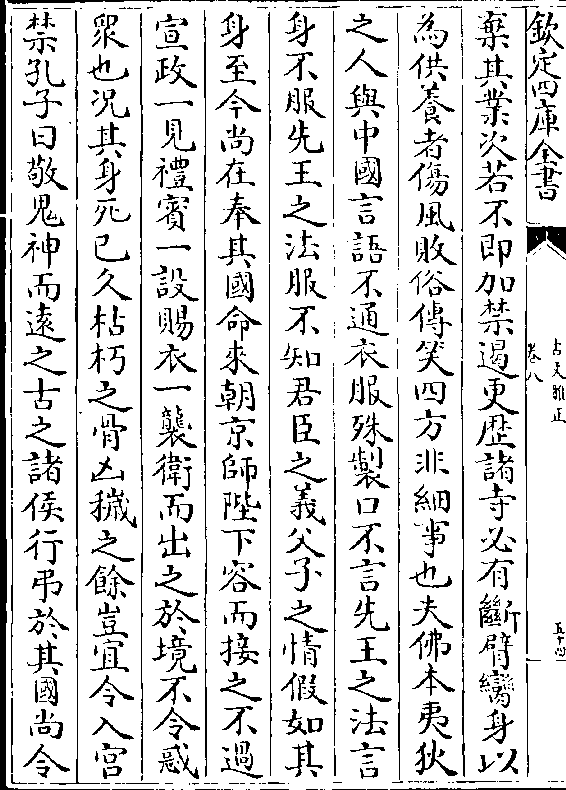 欽定四庫全書
古文雅正
卷八
五十四
棄其業次若不即加禁遏更歴諸寺必有斷臂臠身以
為供養者傷風敗俗傳笑四方非細事也夫佛本夷狄
之人與中國言語不通衣服殊製口不言先王之法言
身不服先王之法服不知君臣之義父子之情假如其
身至今尚在奉其國命來朝京師陛下容而接之不過
宣政一見禮賓一設賜衣一襲衛而出之於境不令惑
衆也况其身死已久枯朽之骨凶穢之餘豈宜令入宫
禁孔子曰敬鬼神而遠之古之諸侯行弔於其國尚令